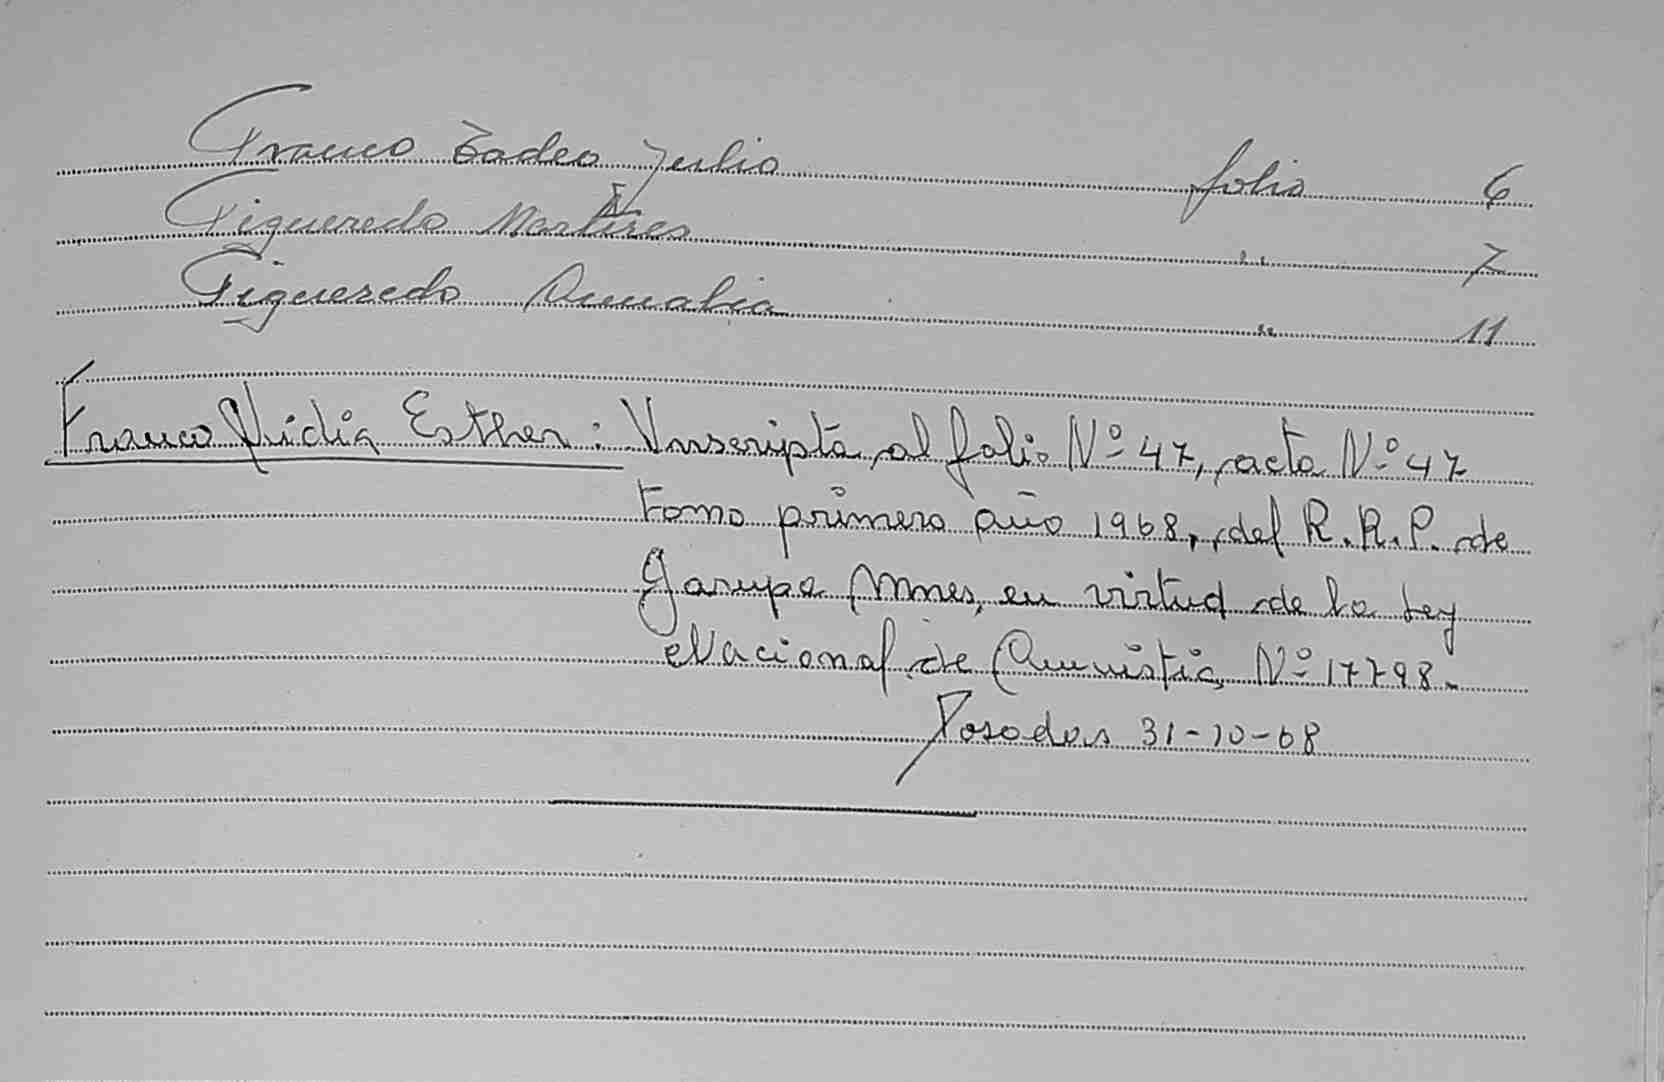 Franco Tadeo Julio folio 6
Figueredo Martires " 7
Figueredo Anunabia " 11
Franco Nidia Esther: Inscripta al folio Nº 47, acta Nº 47
tomo primero año 1968, del R.R.P. de
Garupa Mnes, en virtud de la Ley
Nacional de Amnistia Nº 17798.
Posadas 31-10-68